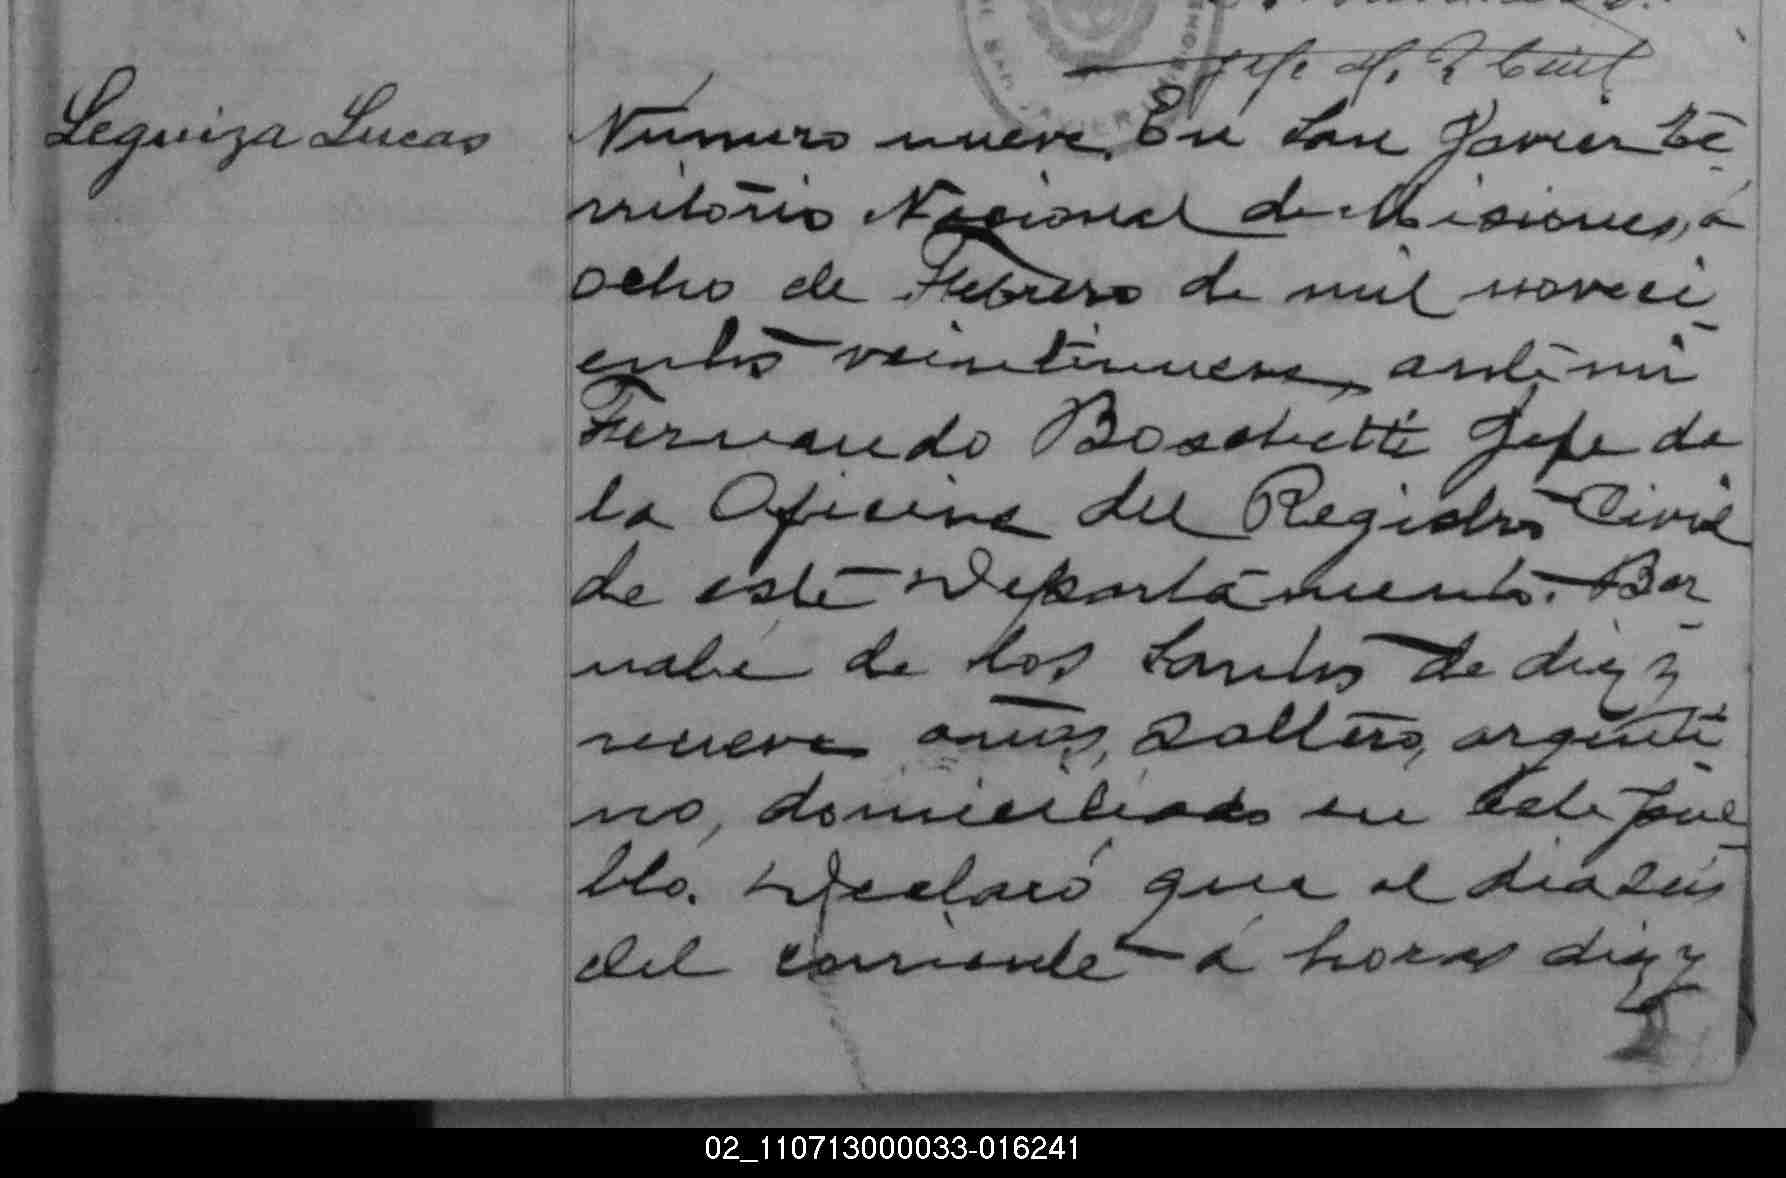 Jefe del R. Civil
SAN JAVIER
MISIONES
Leguiza Lucas
Número nueve. En San Javier Te
rritorio Nacional de Misiones, a
ocho de Febrero de mil noveci
entos veintinueve, ante mi
Fernando Boschetti Jefe de
la Oficina del Registro Civil
de este Departamento. Ber
nabé de los Santos de diez y
nueve años, soltero, argenti
no, domiciliado en este pue
blo. Declaró que el dia seis
del corriente á horas diez y
02_110713000033-016241